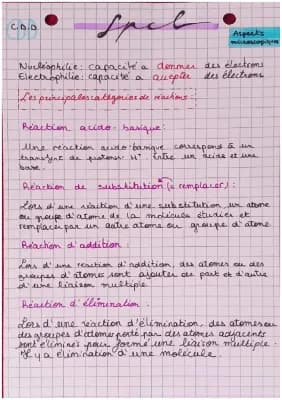 C.D.D
Spcl
Aspects
microscopiques
Nucléophilie : capacité a donner des électrons
Electrophilie : capacité a accepte des électrons
Les principales catégories de réactions :
Réaction acido-basique :
Une réaction acido-basique correspond à un
transfert de protons H⁺. Entre un acide et une
base.
Réaction de substitution (= remplacer) :
Lors d'une réaction d'une substitution, un atome
ou groupe d'atome de la molécule étudier est
remplacer par un autre atome ou groupe d'atome
Réaction d'addition :
Lors d'une réaction d'addition, des atomes ou des
groupes d'atomes sont ajouter de part et d'autre
d'une liaison multiple.
Réaction d'élimination :
Lors d'une réaction d'élimination, des atomes ou
des groupes d'atome porté par des atomes adjacents
sont éliminés pour formé une liaison multiple.
Il y a élimination d'une molécule.